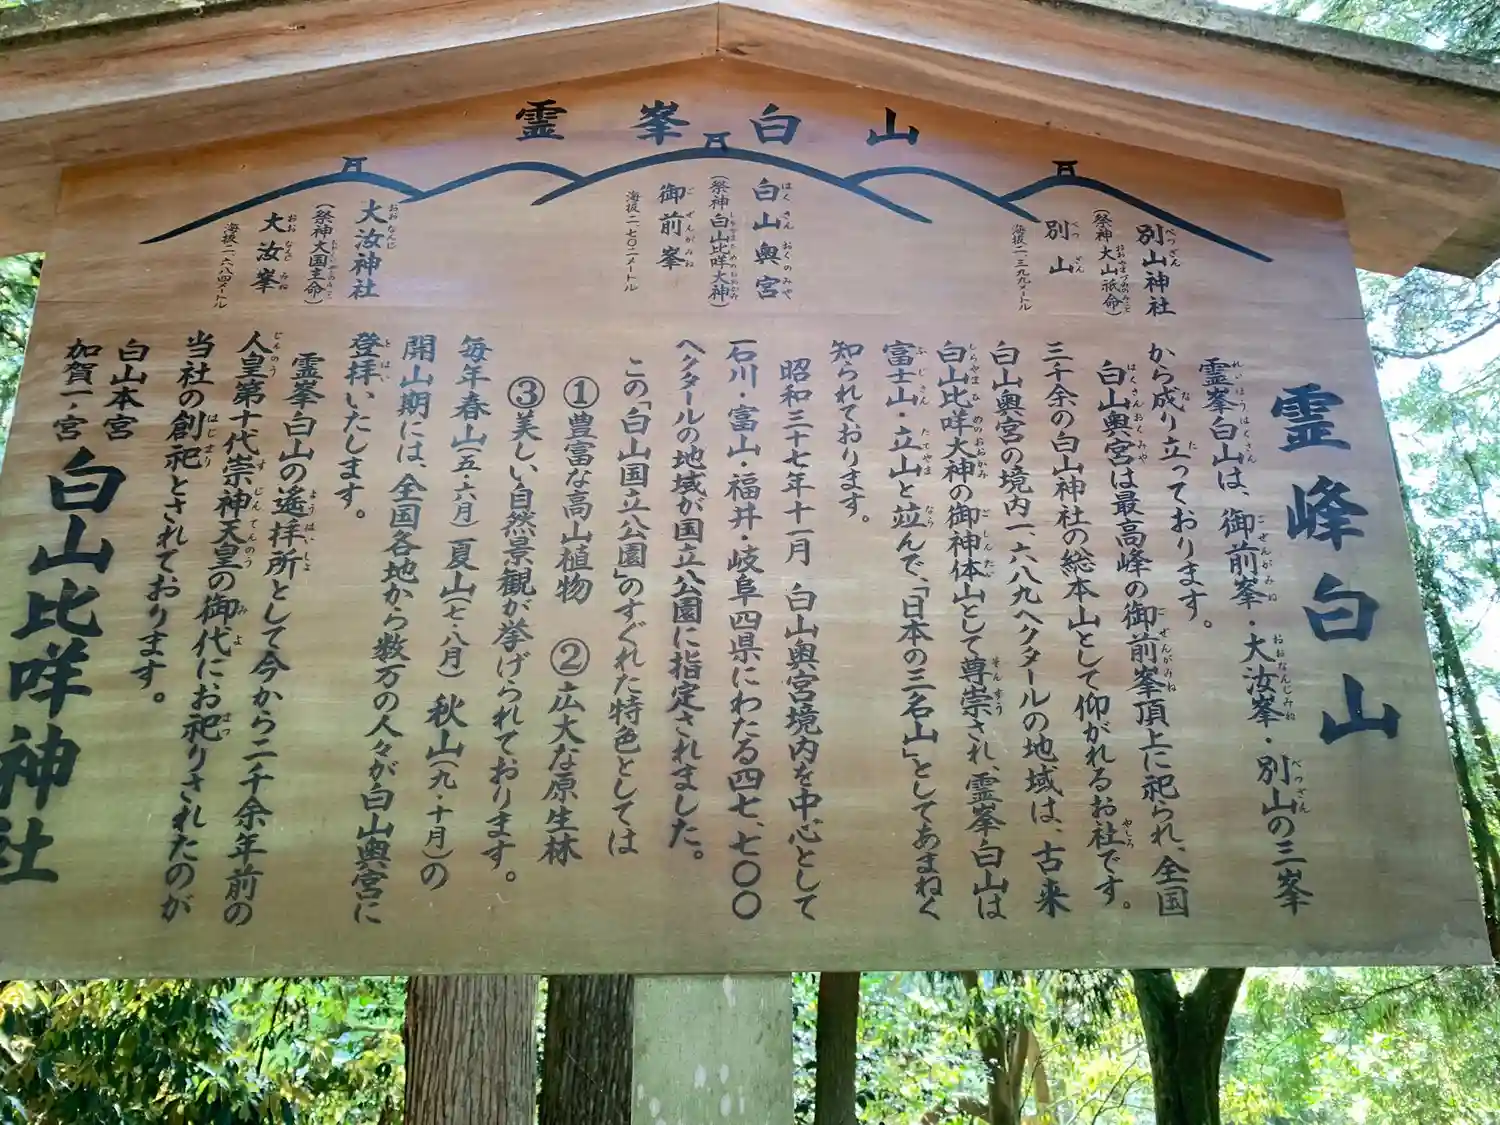 霊峯白山
別山神社
(祭神 大山祇命)
別山
海抜二三九九メートル
白山奥宮
(祭神 白山比咩大神)
御前峯
海抜二、七〇二メートル
大汝神社
(祭神 大国主命)
大汝峯
海抜二、六八四メートル
霊峰白山
霊峯白山は、御前峯・大汝峯・別山の三峯
から成り立っております。
白山奥宮は最高峰の御前峯頂上に祀られ、全国
三千余の白山神社の総本山として仰がれるお社です。
白山奥宮の境内一、六八九ヘクタールの地域は、古来
白山比咩大神の御神体山として尊崇され、霊峯白山は
富士山・立山と竝んで、「日本の三名山」としてあまねく
知られております。
昭和三十七年十一月 白山奥宮境内を中心として
石川・富山・福井・岐阜四県にわたる四七、七〇〇
ヘクタールの地域が国立公園に指定されました。
この「白山国立公園」のすぐれた特色としては
①豊富な高山植物 ②広大な原生林
③美しい自然景観が挙げられております。
毎年春山(五・六月)夏山(七・八月)秋山(九・十月)の
開山期には、全国各地から数万の人々が白山奥宮に
登拝いたします。
霊峯白山の遙拝所として今から二千余年前の
人皇第十代崇神天皇の御代にお祀りされたのが
当社の創祀とされております。
白山本宮
加賀一ノ宮 白山比咩神社